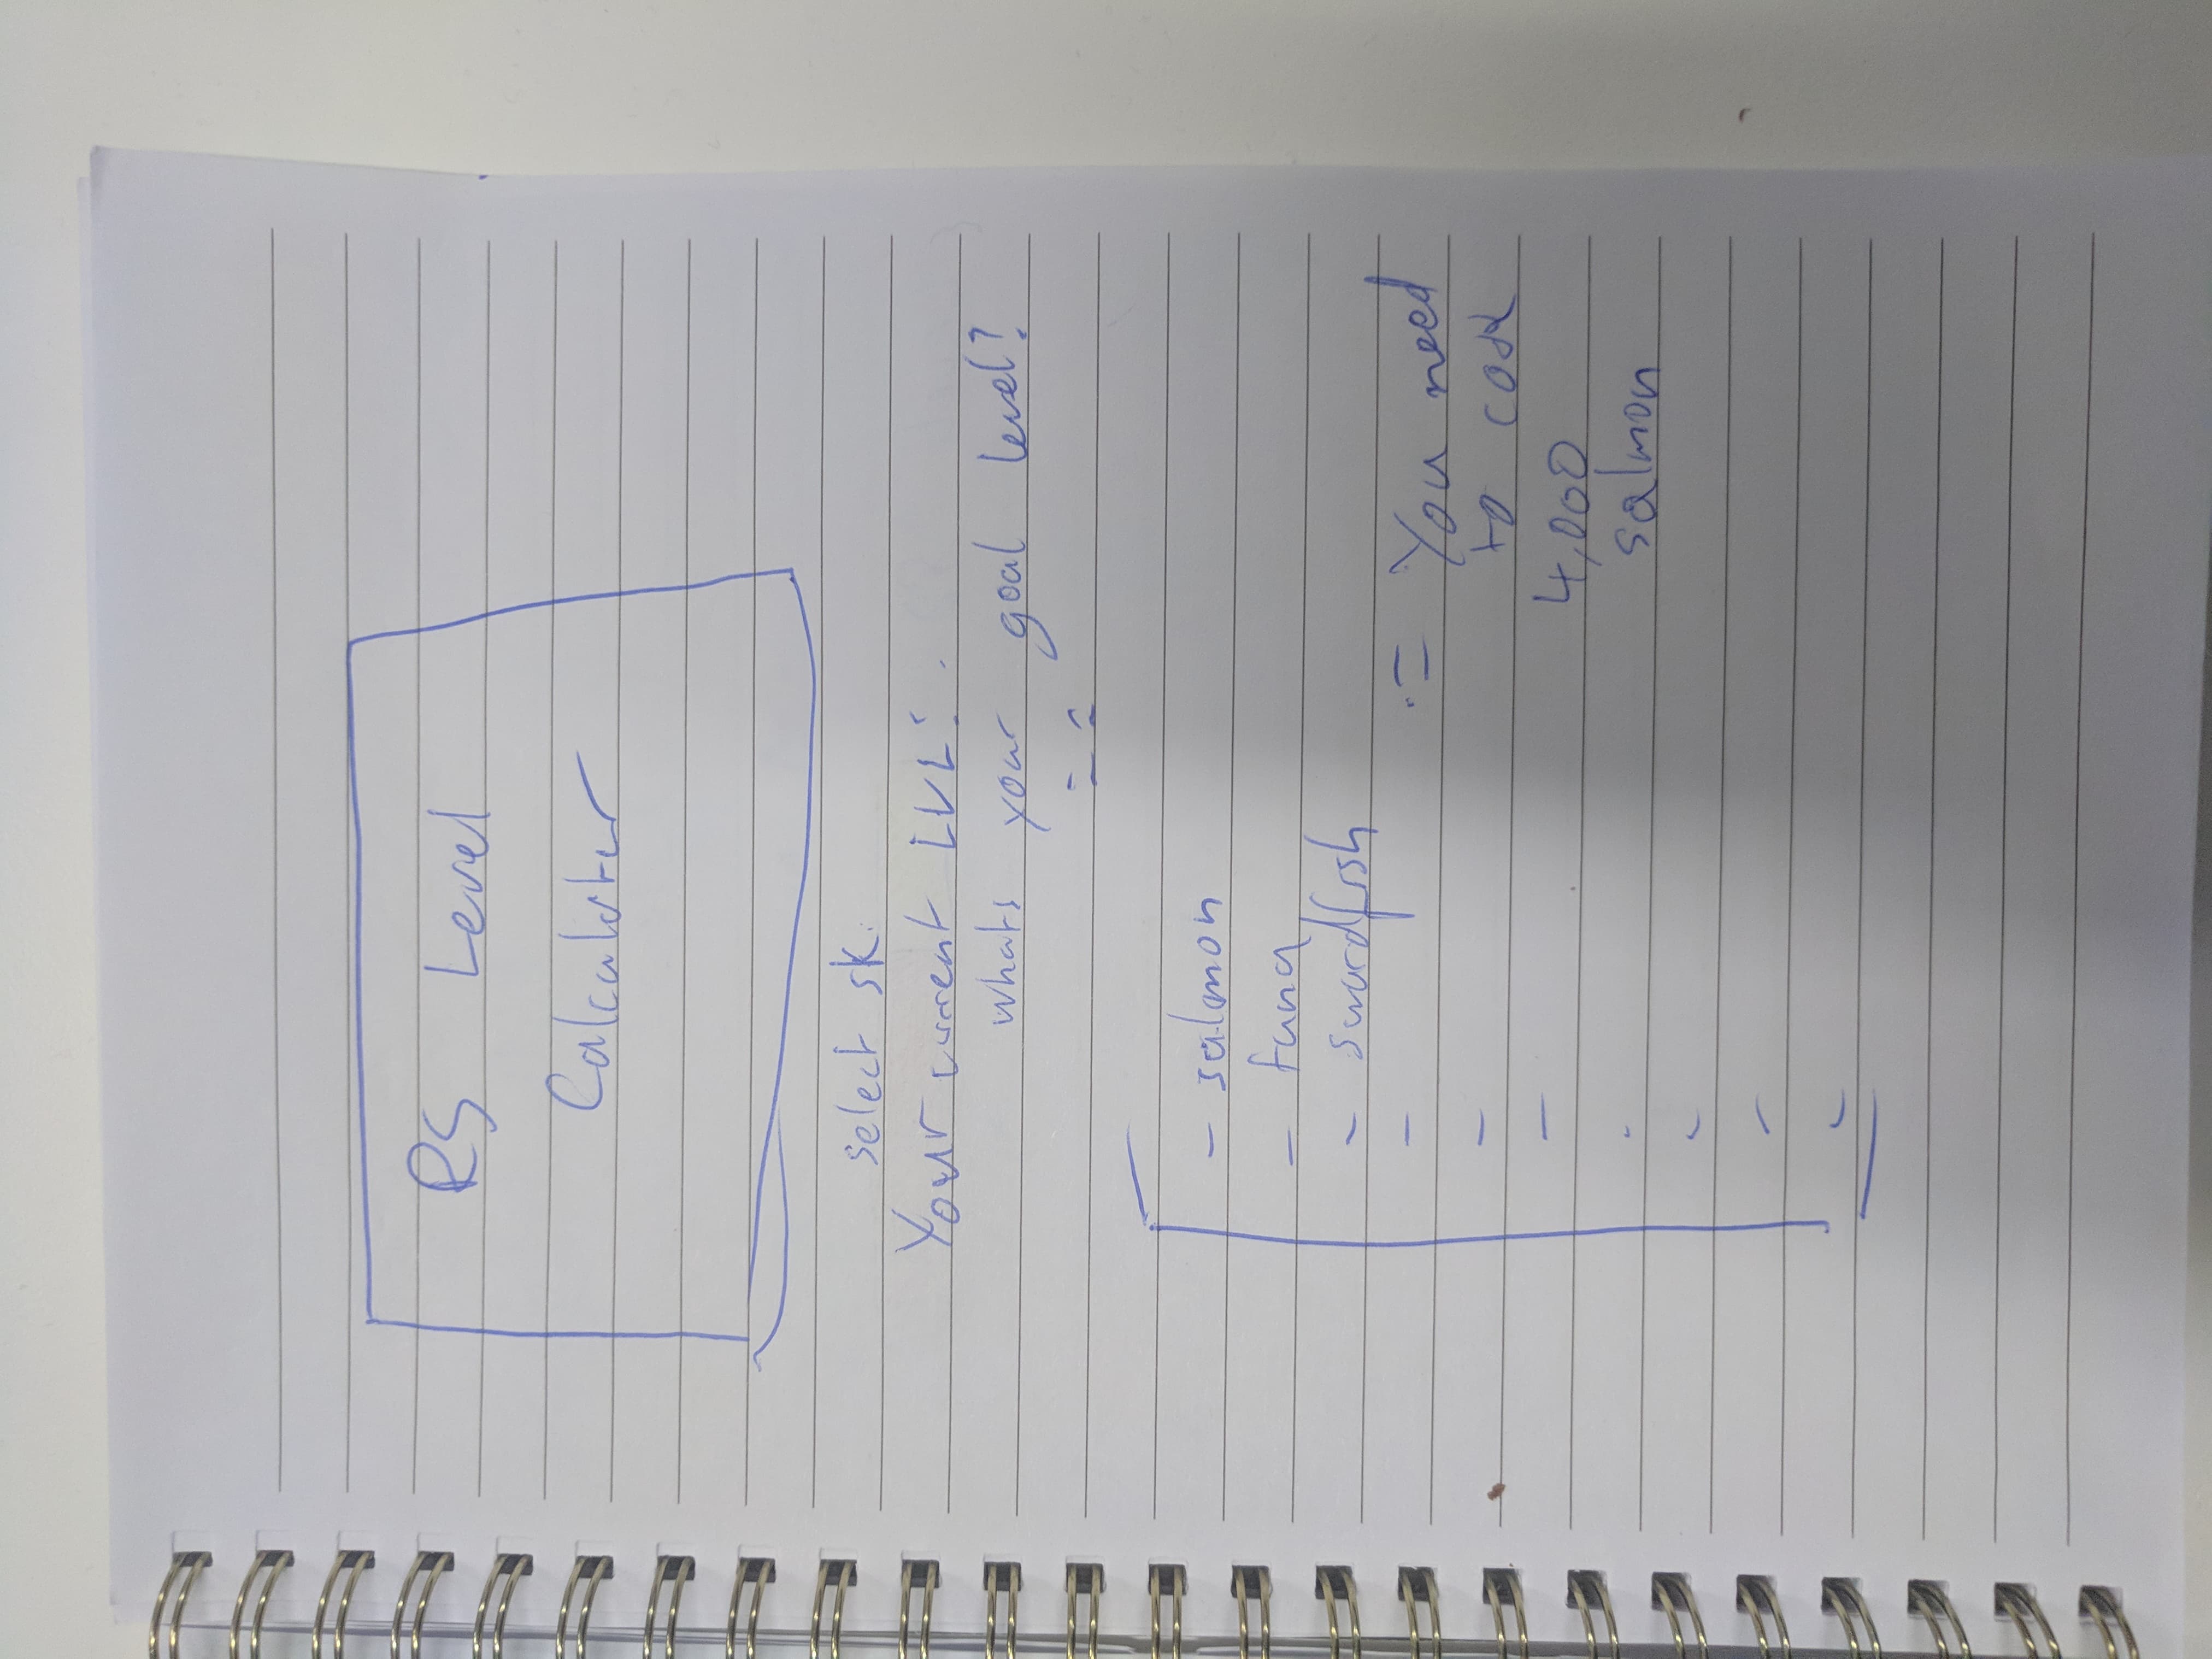 RS Level
Calculator
select sk.
Your current LVL:
whats your goal level?
- salmon
- tuna
- swordfish
-
-
-
-
-
-
-
= You need
to cook
4,000
salmon